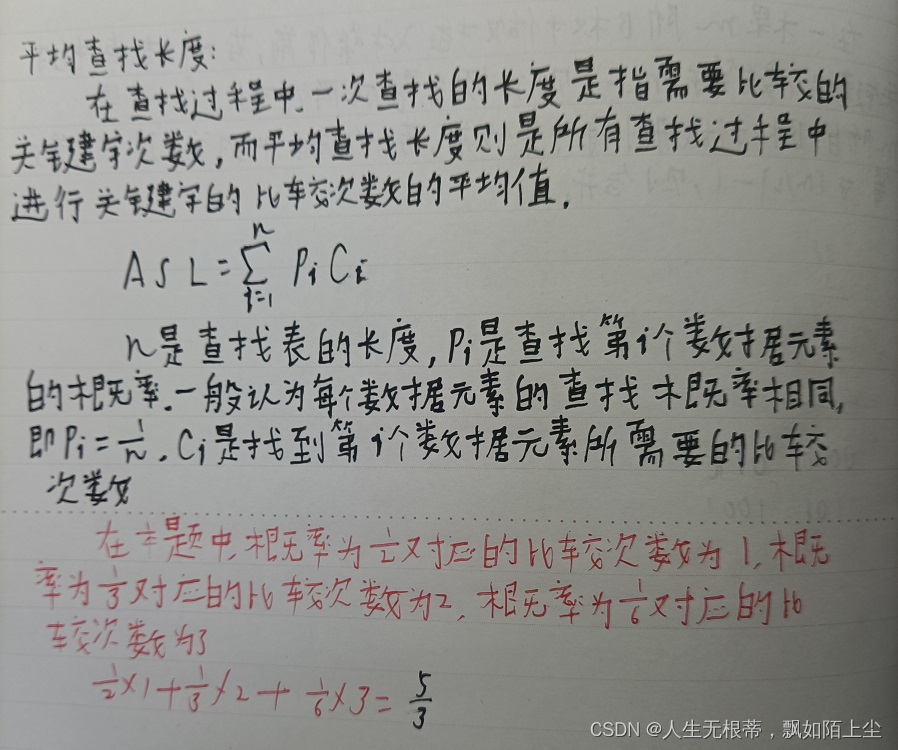 平均查找长度:
在查找过程中,一次查找的长度是指需要比较的
关键字次数,而平均查找长度则是所有查找过程中
进行关键字的比较次数的平均值.
ASL=∑ⁿᵢ₌₁ PᵢCᵢ
n是查找表的长度,Pᵢ是查找第i个数据元素
的概率.一般认为每个数据元素的查找概率相同,
即Pᵢ=1/n.Cᵢ是找到第i个数据元素所需要的比较
次数
在本题中,概率为1/2对应的比较次数为1,概
率为1/3对应的比较次数为2,概率为1/6对应的比
较次数为3
1/2×1+1/3×2+1/6×3=5/3
CSDN @人生无根蒂，飘如陌上尘